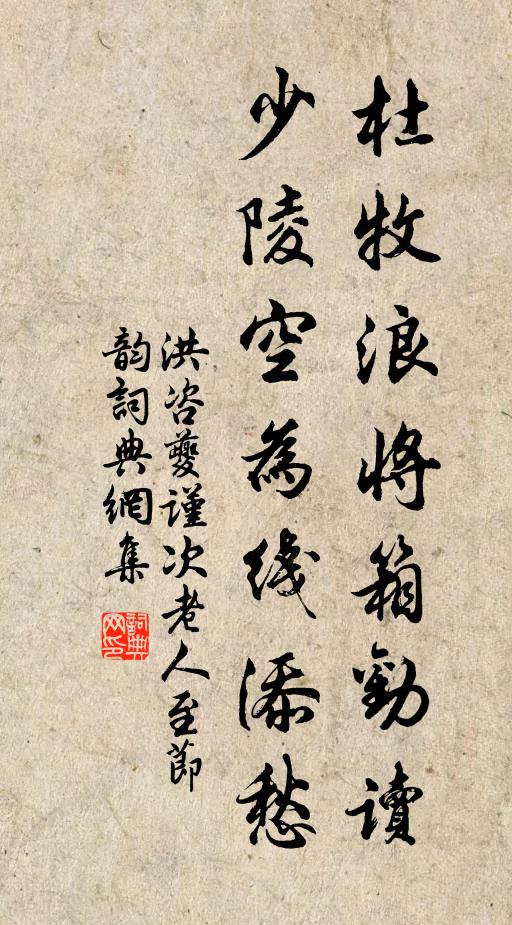 杜牧浪將箱勸讀
少陵空為綫添愁
洪咨夔謹次老人至節
韵詞典網集
詞典
网印